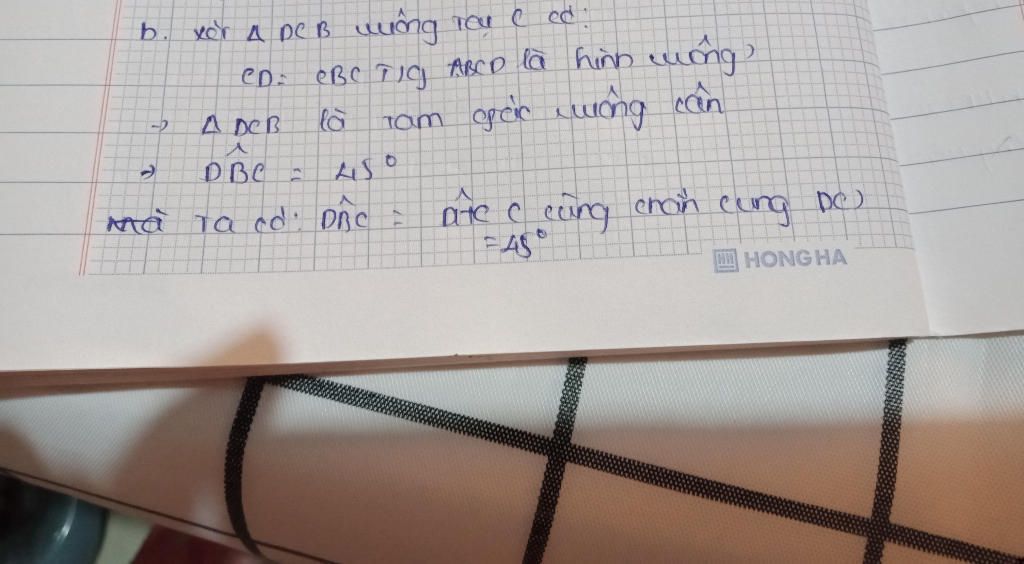 b. xét Δ DCB vuông tại C có:
CD = CBC T/g ABCD là hình vuông)
→ Δ DCB là tam giác vuông cân
→ DB̂C = 45°
mà ta có: DB̂C = DĤC ( cùng chắn cung DC)
= 45°
HONG HA